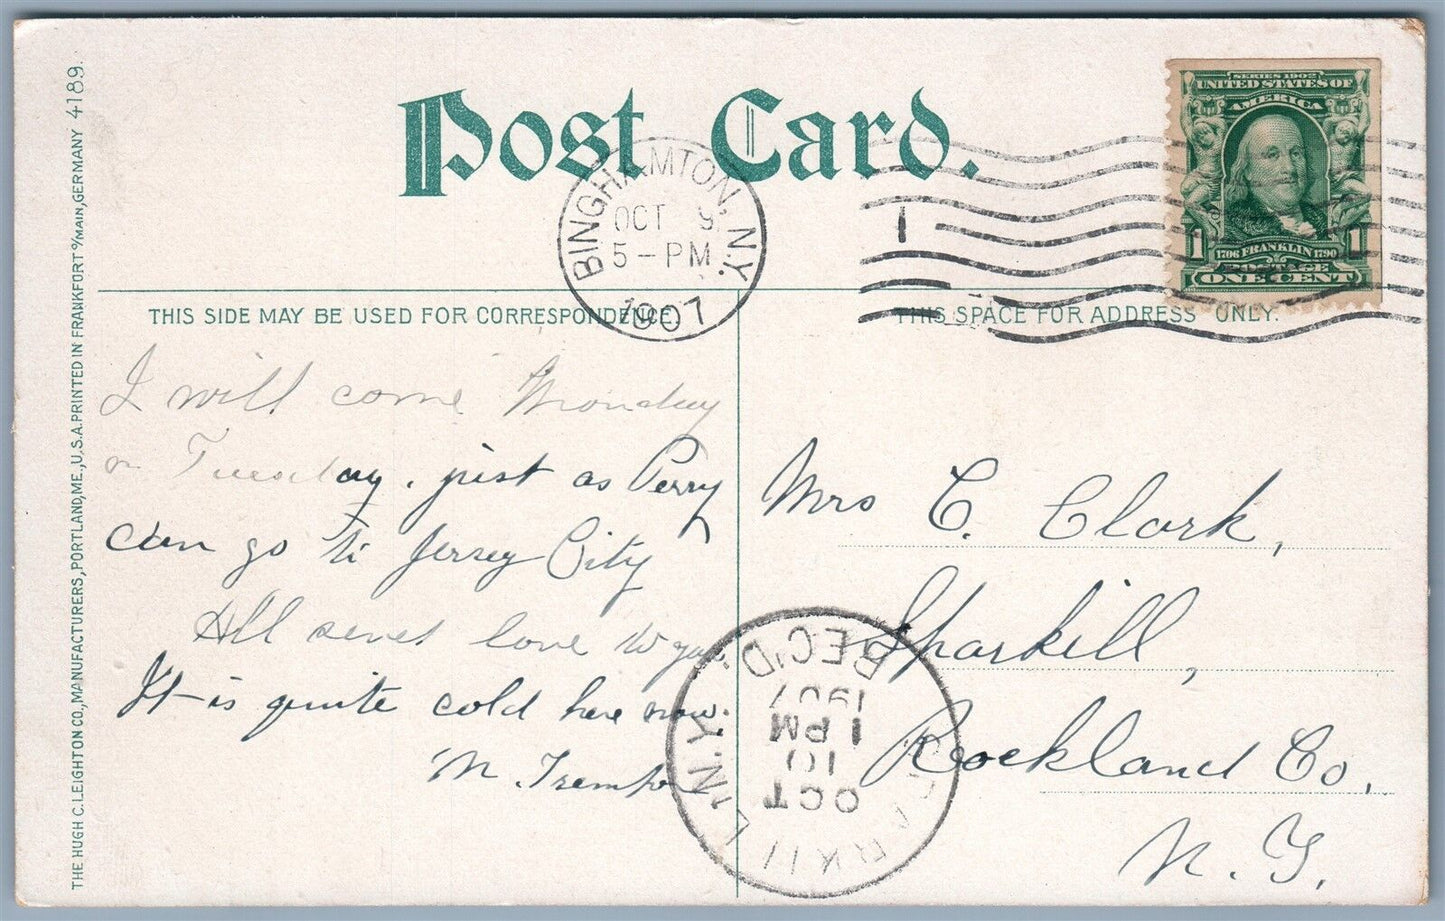 Post Card.
SERIES 1902
UNITED STATES OF
AMERICA
1 1
1706 FRANKLIN 1790
POSTAGE
ONE CENT
BINGHAMTON, N.Y.
OCT 9
5-PM
1907
1
THIS SIDE MAY BE USED FOR CORRESPONDENCE
THIS SPACE FOR ADDRESS ONLY.
I will come Monday
or Tuesday, just as Perry
can go to Jersey City
All send love to you.
It is quite cold here now.
M.
Mrs C. Clark,
Sparkill,
Rockland Co,
N. Y.
SPARKILL, N.Y.
OCT
10
1 PM
1907
REC'D
THE HUGH C. LEIGHTON CO., MANUFACTURERS, PORTLAND, ME., U.S.A. PRINTED IN FRANKFORT o/MAIN, GERMANY 4189.